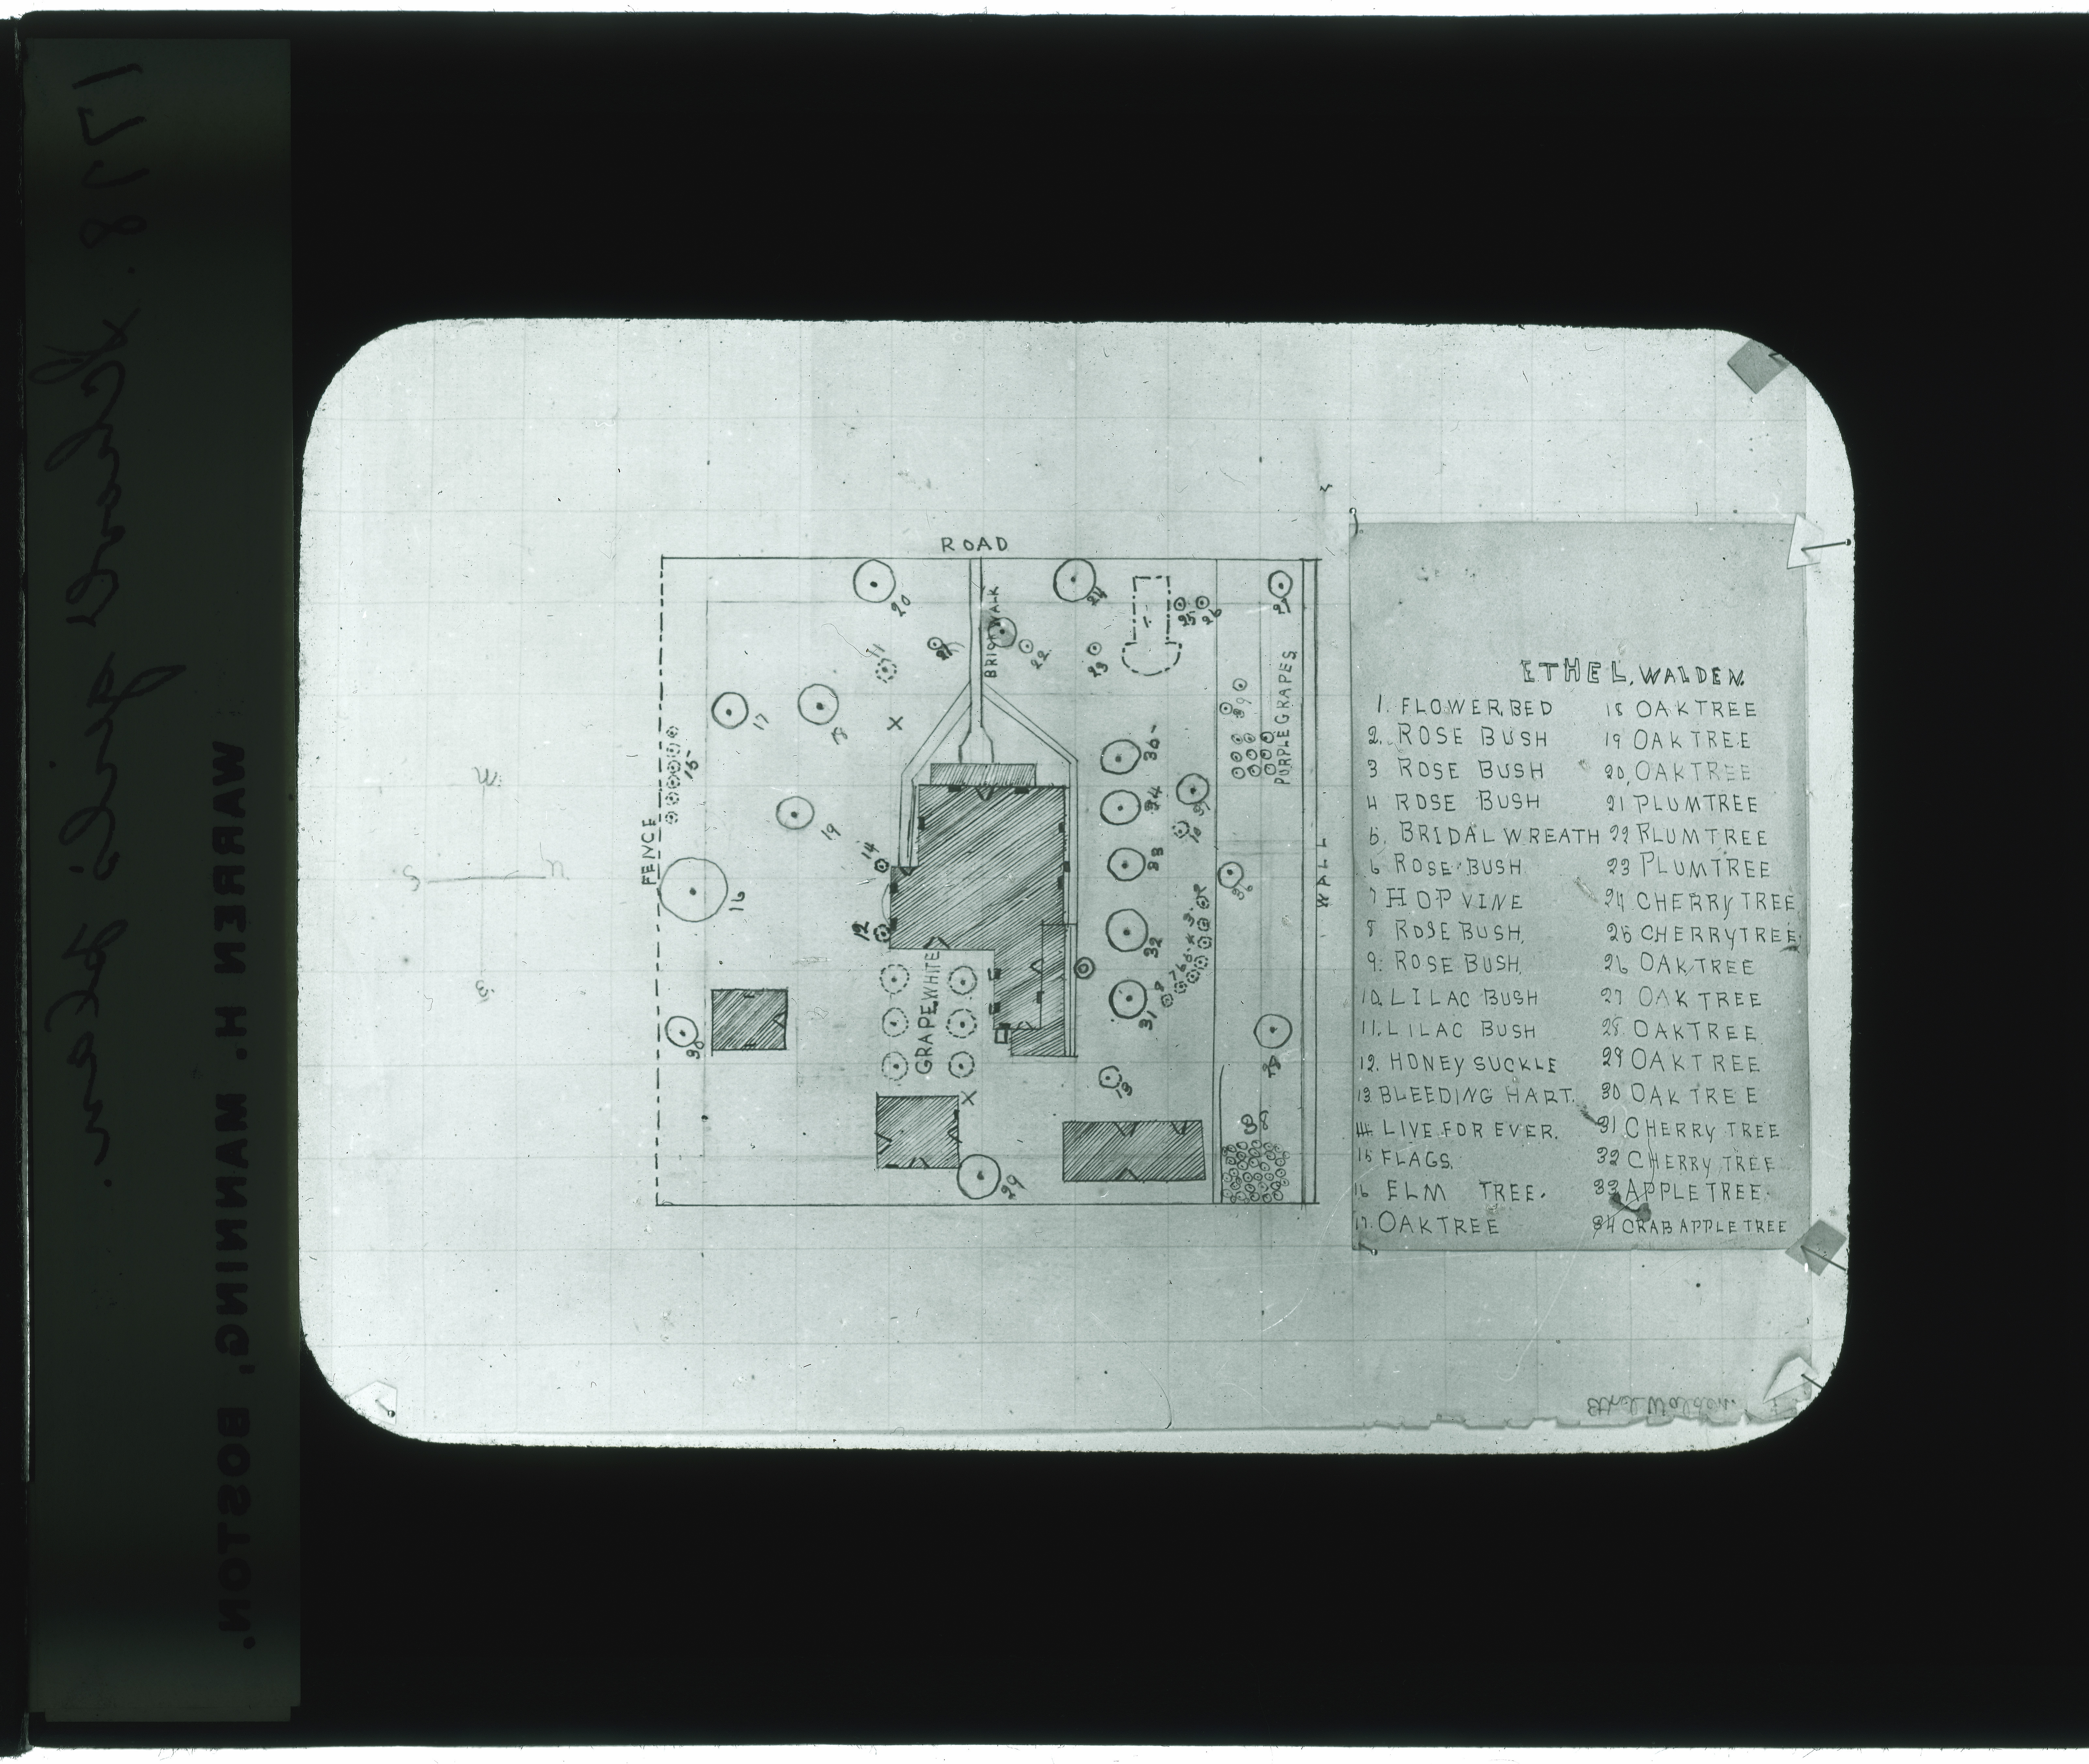 1778. School girl's garden.
WARREN H. MANNING, BOSTON.
ROAD
BRICK WALK
FENCE
WALL
PURPLE GRAPES
GRAPE WHITE
20
24
25
26
21
22
23
11
17
18
19
15
14
16
12
30
34
33
32
31
10
13
29
W
S
N
E
ETHEL. WALDEN.
1. FLOWER BED
2. ROSE BUSH
3 ROSE BUSH
4 ROSE BUSH
5. BRIDAL WREATH
6 ROSE BUSH
7 HOP VINE
8 ROSE BUSH.
9. ROSE BUSH.
10. LILAC BUSH
11. LILAC BUSH
12. HONEY SUCKLE
13 BLEEDING HART.
14 LIVE FOR EVER.
15 FLAGS.
16 ELM TREE.
17. OAK TREE
18 OAK TREE
19 OAK TREE
20, OAK TREE
21 PLUM TREE
22 PLUM TREE
23 PLUM TREE
24 CHERRY TREE
25 CHERRY TREE
26 OAK TREE
27 OAK TREE
28 OAK TREE
29 OAK TREE
30 OAK TREE
31 CHERRY TREE
32 CHERRY TREE
33 APPLE TREE.
34 CRAB APPLE TREE